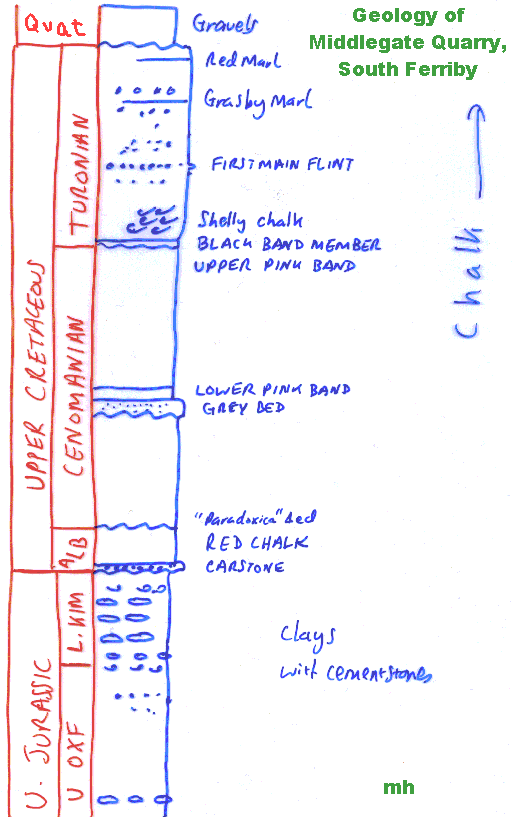 Geology of
Middlegate Quarry,
South Ferriby
Quat
Gravels
Red Marl
Grasby Marl
FIRST MAIN FLINT
Shelly chalk
BLACK BAND MEMBER
UPPER PINK BAND
LOWER PINK BAND
GREY BED
"Paradoxica" bed
RED CHALK
CARSTONE
Clays
with cementstones
Chalk
UPPER CRETACEOUS
TURONIAN
CENOMANIAN
ALB
U. JURASSIC
L. KIM
U OXF
mh